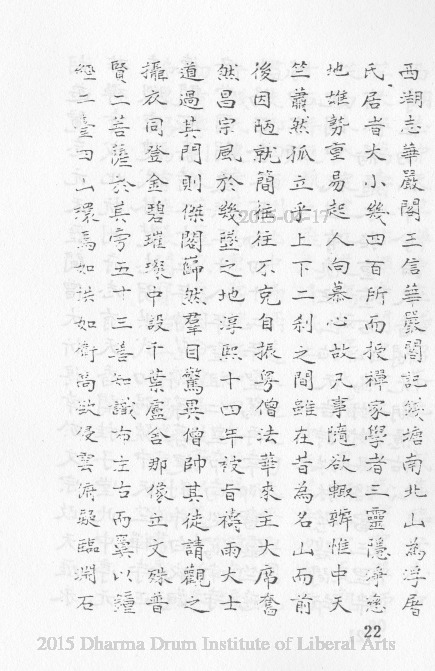 西湖志華嚴閣三信華嚴閣記錢塘南北山為浮屠
氏居者大小幾四百所而授禪家學者三靈隱淨慈
地雄勢重易起人向慕心故凡事隨欲輙辦惟中天
竺蕭然孤立乎上下二刹之間雖在昔為名山而前
後因陋就簡往往不克自振粤僧法華來主大席奮
然昌宗風於幾墜之地淳熙十四年被旨禱雨大士
道過其門則傑閣巋然羣目驚異僧帥其徒請觀之
攝衣同登金碧璀璨中設千葉盧舍那像立文殊普
賢二菩薩於其旁五十三善知識布左右而翼以鐘
經二臺四山環焉如拱如衛高欲侵雲俯疑臨淵石
2015-01-17
22
2015 Dharma Drum Institute of Liberal Arts